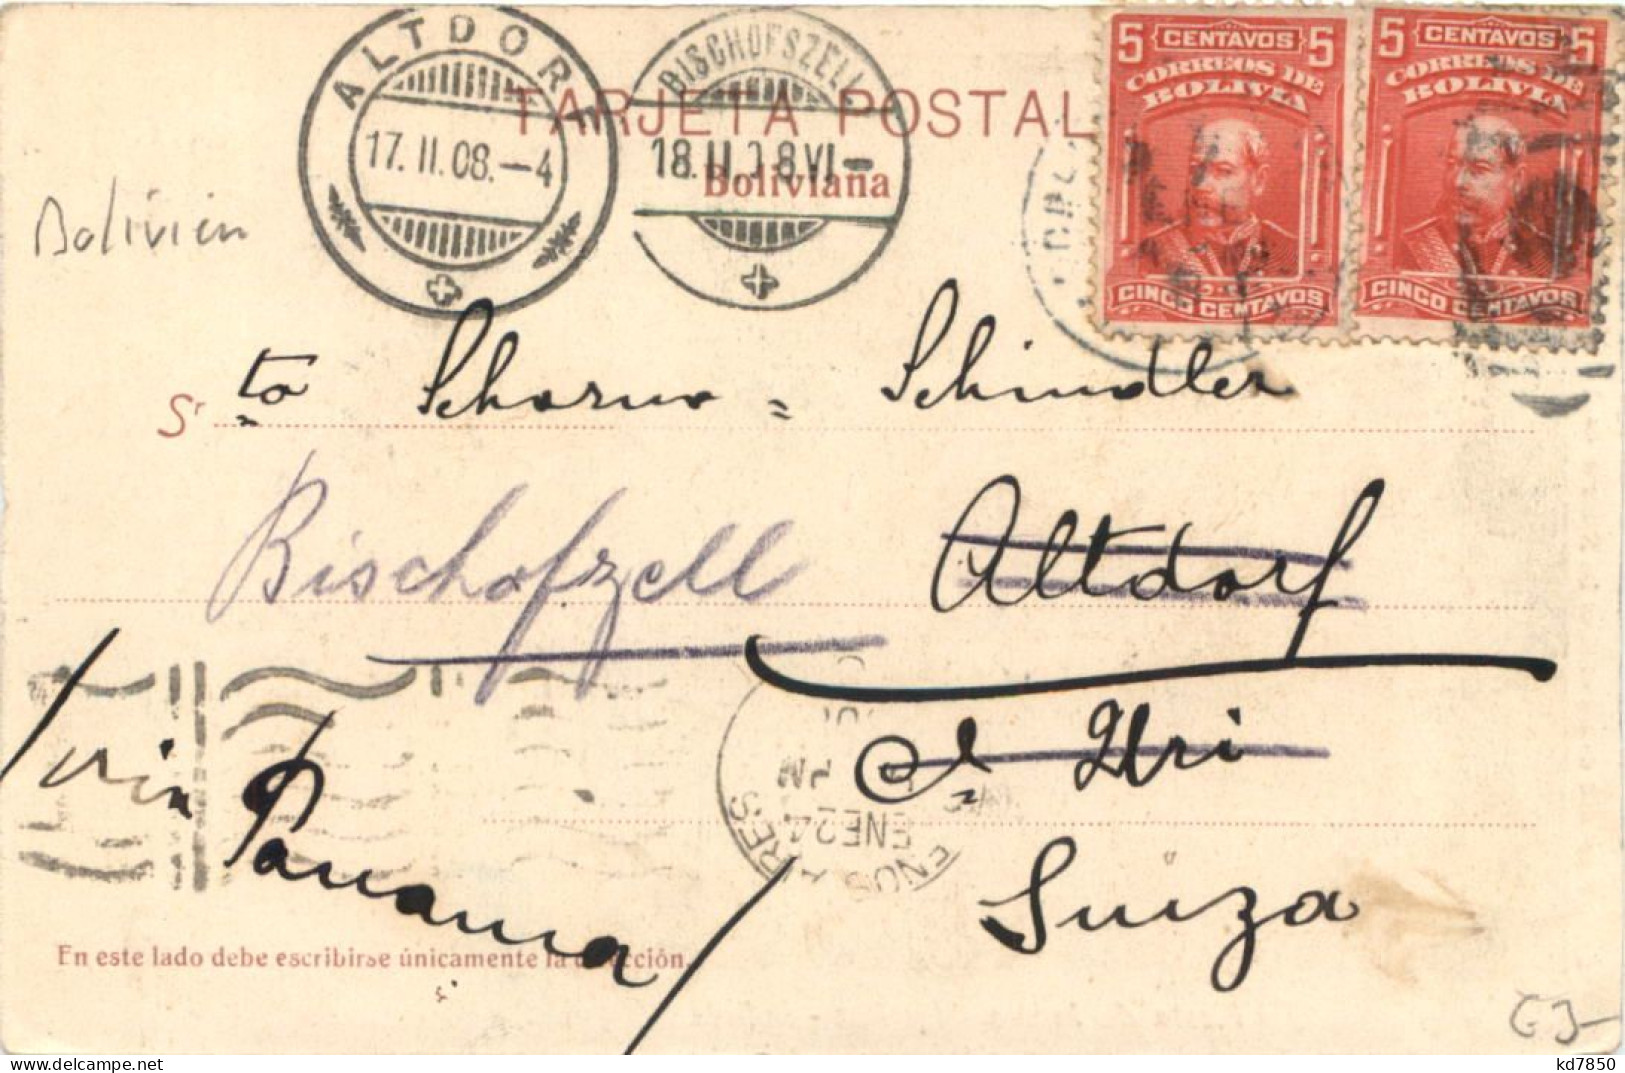 ALTDORF
17. II. 08. – 4
BISCHOFSZELL
18. II. 08 VI –
TARJETA POSTAL
Boliviana
5 CENTAVOS 5
CORREOS DE
BOLIVIA
CINCO CENTAVOS
5 CENTAVOS 5
CORREOS DE
BOLIVIA
CINCO CENTAVOS
Bolivien
Sr
Bischofzell
Altdorf
Uri
Suiza
via
Panama
ENE 24
PM
En este lado debe escribirse únicamente la dirección.
kd7850